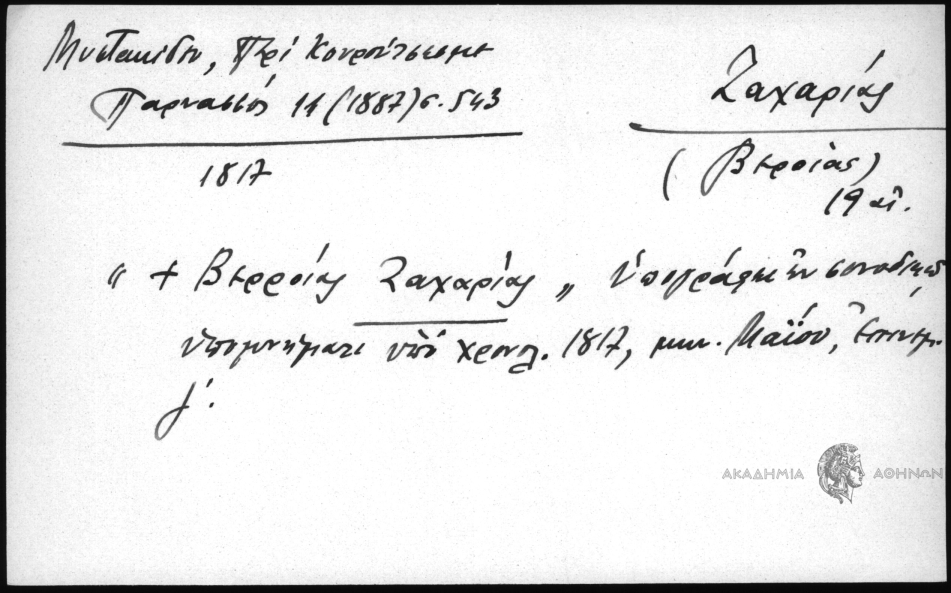 Μυστακίδου, Περί Κουρούτσεσμε
Παρνασσός 11 (1887) σ. 543
1817
Ζαχαρίας
(Βεροίας)
19 αἰ.
" + Βερροίας Ζαχαρίας „ ὑπογράφει ἐν συνοδικῷ
ὑπομνήματι ὑπό χρονολ. 1817, μην. Μαΐου,
ΑΚΑΔΗΜΙΑ ΑΘΗΝΩΝ